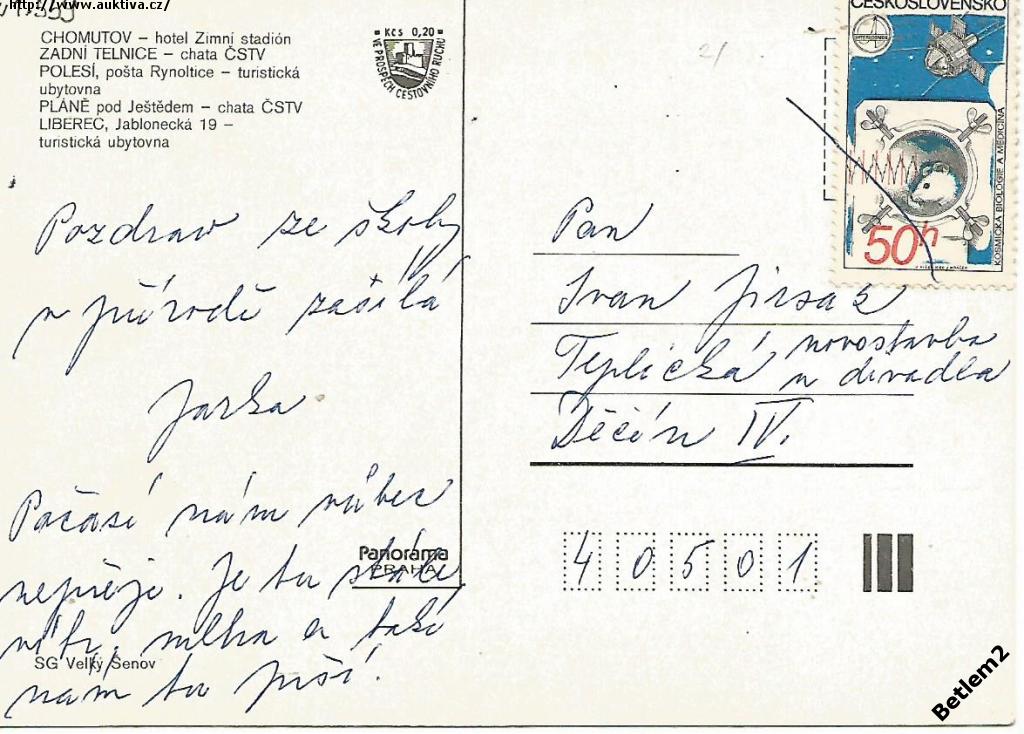 http://www.auktiva.cz/
CHOMUTOV – hotel Zimní stadión
ZADNÍ TELNICE – chata ČSTV
POLESÍ, pošta Rynoltice – turistická
ubytovna
PLÁNĚ pod Ještědem – chata ČSTV
LIBEREC, Jablonecká 19 –
turistická ubytovna
Kčs 0,20
VE PROSPĚCH CESTOVNÍHO RUCHU
2/
ČESKOSLOVENSKO
INTERKOSMOS
KOSMICKÁ BIOLOGIE A MEDICÍNA
50h
Pozdrav ze školy
v přírodě zasílá
Jarka
Počasí nám vůbec
nepřeje. Je tu stále
vítr, mlha a také
nám tu prší.
Panoráma
PRAHA
SG Velký Šenov
Pan
Ivan Jirsák
Teplická novostavba
u divadla
Děčín IV.
40501
Betlem2